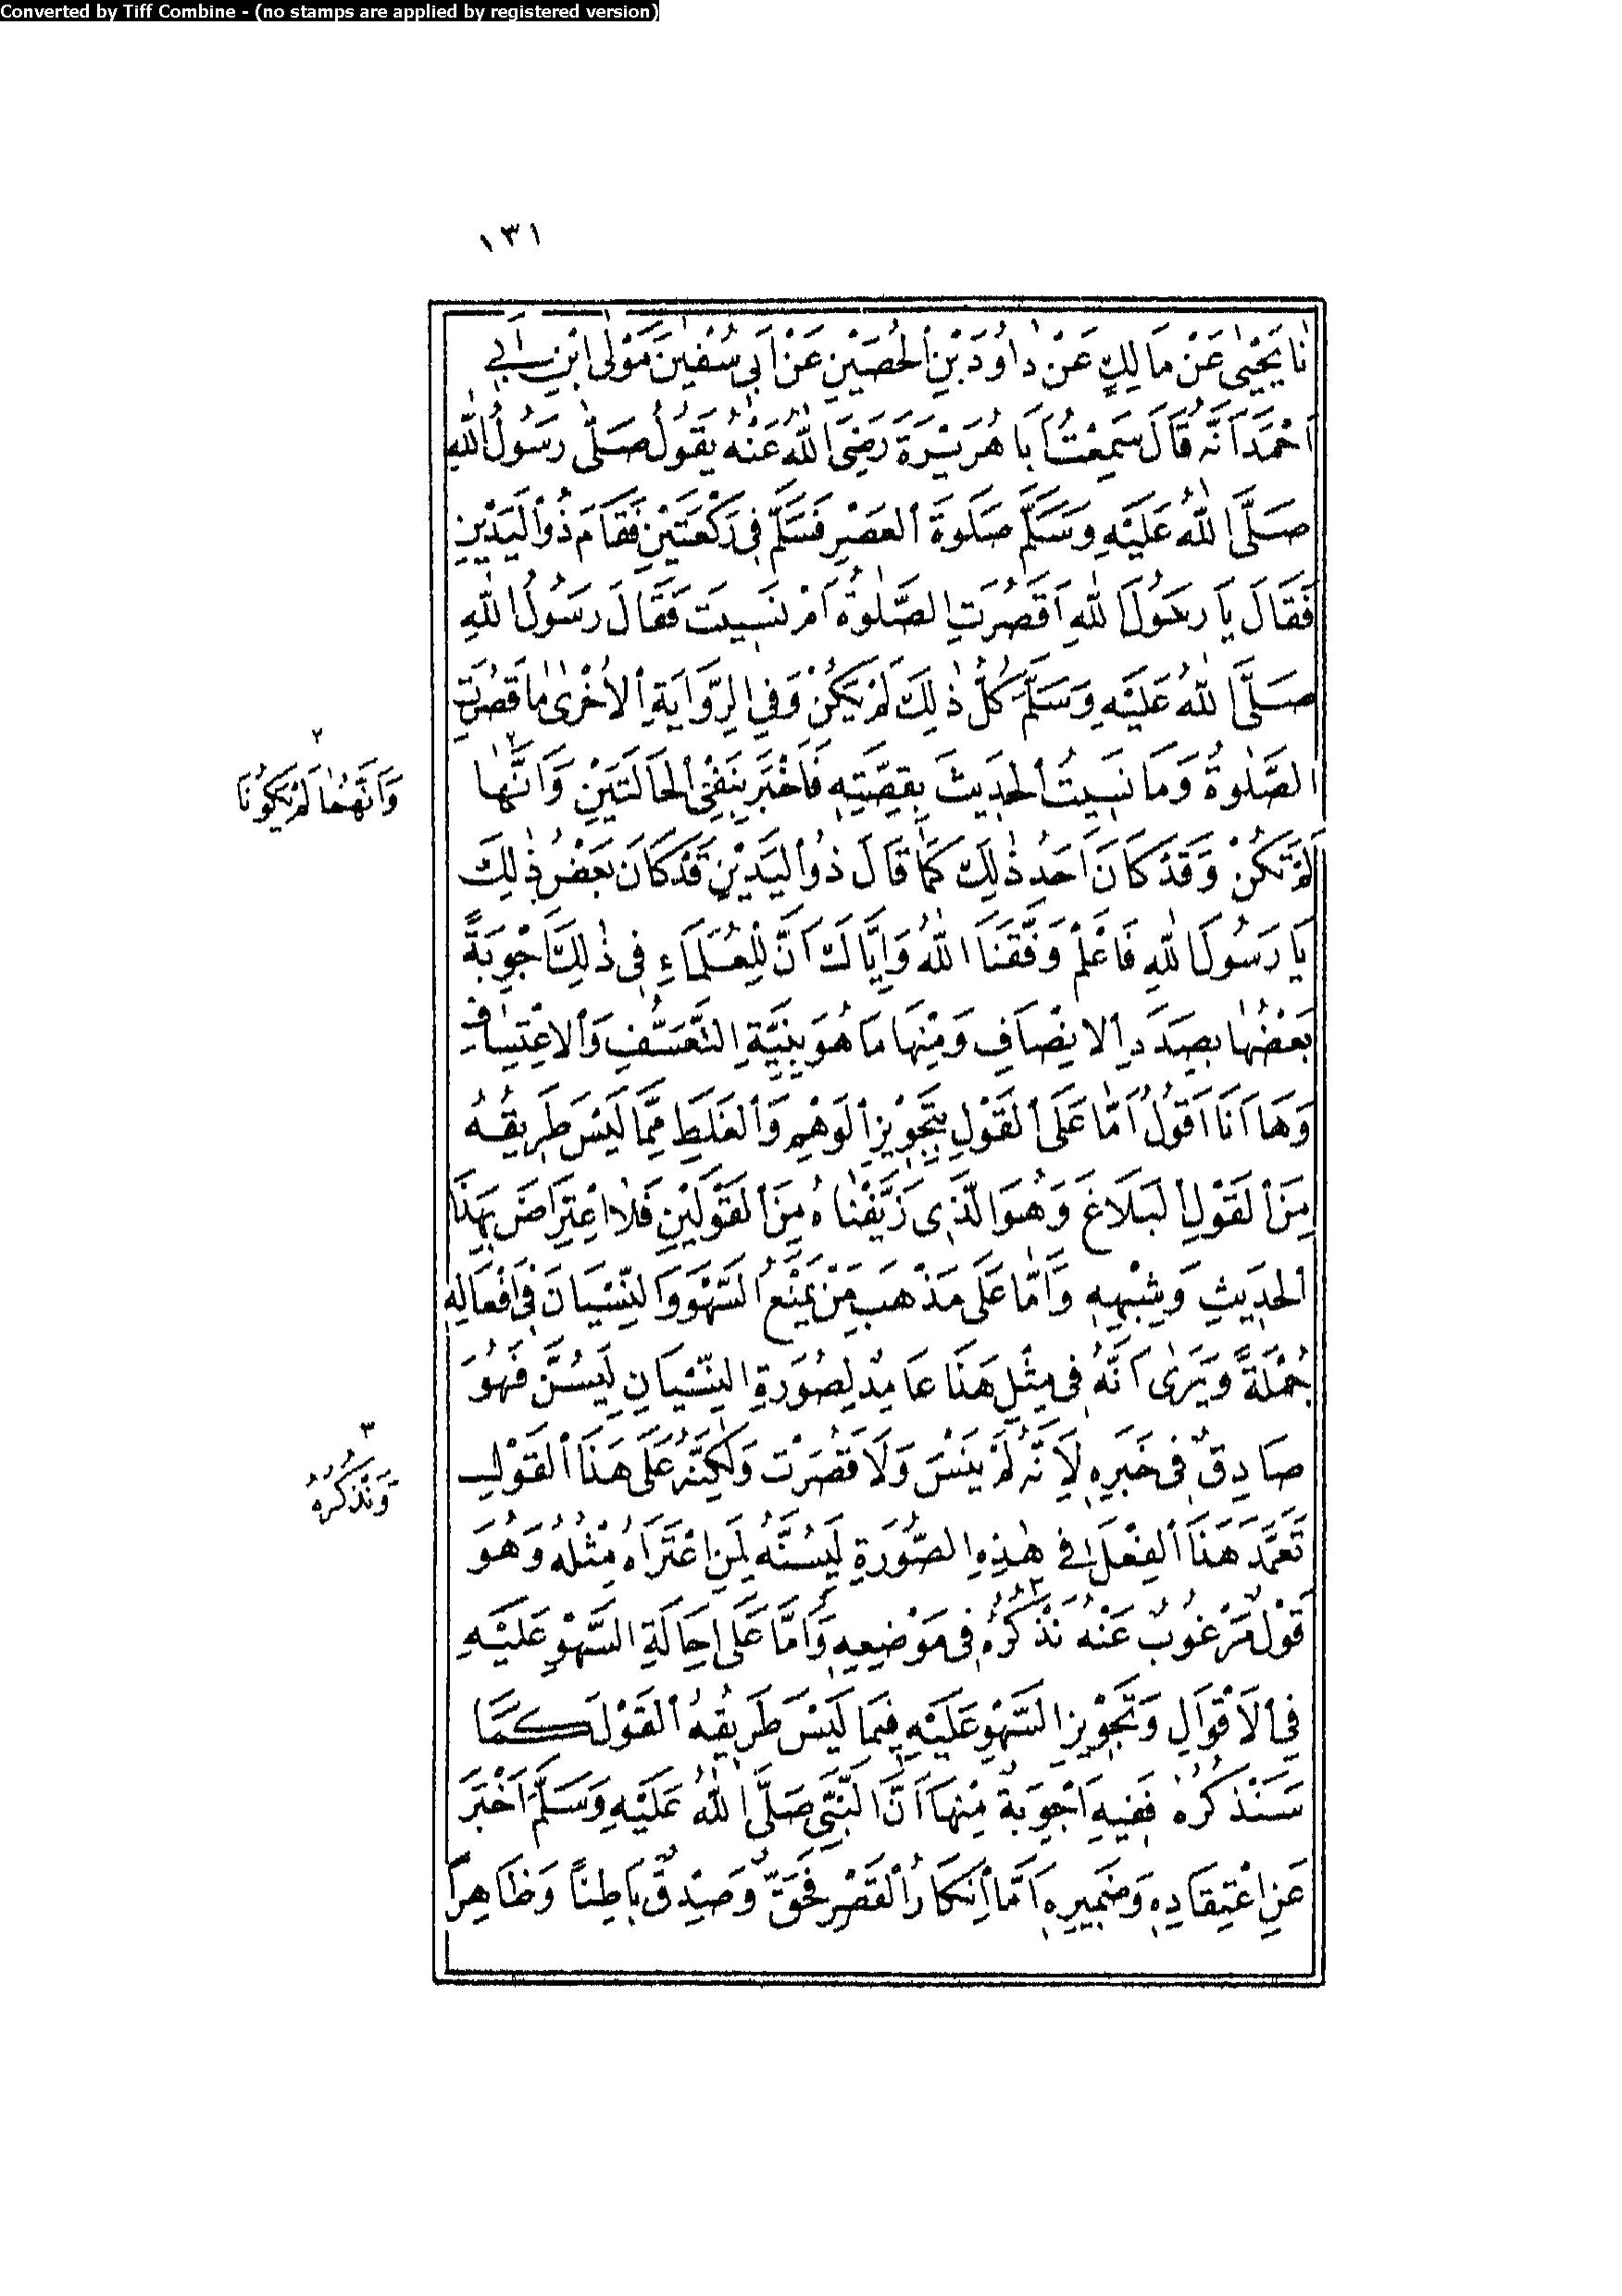 Converted by Tiff Combine - (no stamps are applied by registered version)
١٣١
نَا يَحْيٰى عَنْ مَالِكٍ عَنْ دَاوُدَ بْنِ الْحُصَيْنِ عَنْ اَبِى سُفْيٰنَ مَوْلَى ابْنِ اَبِى
اَحْمَدَ اَنَّهُ قَالَ سَمِعْتُ اَبَا هُرَيْرَةَ رَضِىَ اللّٰهُ عَنْهُ يَقُولُ صَلّٰى رَسُولُ اللّٰهِ
صَلَّى اللّٰهُ عَلَيْهِ وَسَلَّمَ صَلٰوةَ الْعَصْرِ فَسَلَّمَ فِى رَكْعَتَيْنِ فَقَامَ ذُو الْيَدَيْنِ
فَقَالَ يَا رَسُولَ اللّٰهِ اَقَصُرَتِ الصَّلٰوةُ اَمْ نَسِيتَ فَقَالَ رَسُولُ اللّٰهِ
صَلَّى اللّٰهُ عَلَيْهِ وَسَلَّمَ كُلُّ ذٰلِكَ لَمْ يَكُنْ وَفِى الرِّوَايَةِ الْاُخْرٰى مَا قَصُرَتِ
الصَّلٰوةُ وَمَا نَسِيتُ الْحَدِيثَ بِقِصَّتِهِ فَاَخْبَرَ بِنَفْىِ الْحَالَتَيْنِ وَاَنَّهَا ٢
لَمْ تَكُنْ وَقَدْ كَانَ اَحَدُ ذٰلِكَ كَمَا قَالَ ذُو الْيَدَيْنِ قَدْ كَانَ بَعْضُ ذٰلِكَ
يَا رَسُولَ اللّٰهِ فَاعْلَمْ وَفَّقَنَا اللّٰهُ وَاِيَّاكَ اَنَّ لِلْعُلَمَاءِ فِى ذٰلِكَ اَجْوِبَةً
بَعْضُهَا بِصَدَدِ الْاِنْصَافِ وَمِنْهَا مَا هُوَ بِنِيَّةِ التَّعَسُّفِ وَالْاِعْتِسَافِ
وَهَا اَنَا اَقُولُ اَمَّا عَلَى الْقَوْلِ بِتَجْوِيزِ الْوَهْمِ وَالْغَلَطِ مِمَّا لَيْسَ طَرِيقُهُ
مِنَ الْقَوْلِ الْبَلَاغَ وَهُوَ الَّذِى زَيَّفْنَاهُ مِنَ الْقَوْلَيْنِ فَلَا اعْتِرَاضَ بِهٰذَا
الْحَدِيثِ وَشِبْهِهِ وَاَمَّا عَلَى مَذْهَبِ مَنْ يَمْنَعُ السَّهْوَ وَالنِّسْيَانَ فِى اَفْعَالِهِ
جُمْلَةً وَيَرٰى اَنَّهُ فِى مِثْلِ هٰذَا عَامِدٌ لِصُورَةِ النِّسْيَانِ لِيَسُنَّ فَهُوَ
صَادِقٌ فِى خَبَرِهِ لِاَنَّهُ لَمْ يَنْسَ وَلَا قَصُرَتْ وَلٰكِنَّهُ عَلَى هٰذَا الْقَوْلِ
تَعَمَّدَ هٰذَا الْفِعْلَ فِى هٰذِهِ الصُّورَةِ لِيَسُنَّهُ لِمَنِ اعْتَرَاهُ مِثْلُهُ وَهُوَ
قَوْلٌ مَرْغُوبٌ عَنْهُ نَذْكُرُهُ ٣ فِى مَوْضِعِهِ وَاَمَّا عَلَى اِحَالَةِ السَّهْوِ عَلَيْهِ
فِى الْاَقْوَالِ وَتَجْوِيزِ السَّهْوِ عَلَيْهِ فِيمَا لَيْسَ طَرِيقُهُ الْقَوْلَ كَمَا
سَنَذْكُرُهُ فَفِيهِ اَجْوِبَةٌ مِنْهَا اَنَّ النَّبِىَّ صَلَّى اللّٰهُ عَلَيْهِ وَسَلَّمَ اَخْبَرَ
عَنِ اعْتِقَادِهِ وَضَمِيرِهِ اَمَّا اِنْكَارُ الْقَصْرِ فَحَقٌّ وَصِدْقٌ بَاطِنًا وَظَاهِرًا
٢
وَاَنَّهُمَا لَمْ يَكُونَا
٣
وَنَذْكُرُهُ